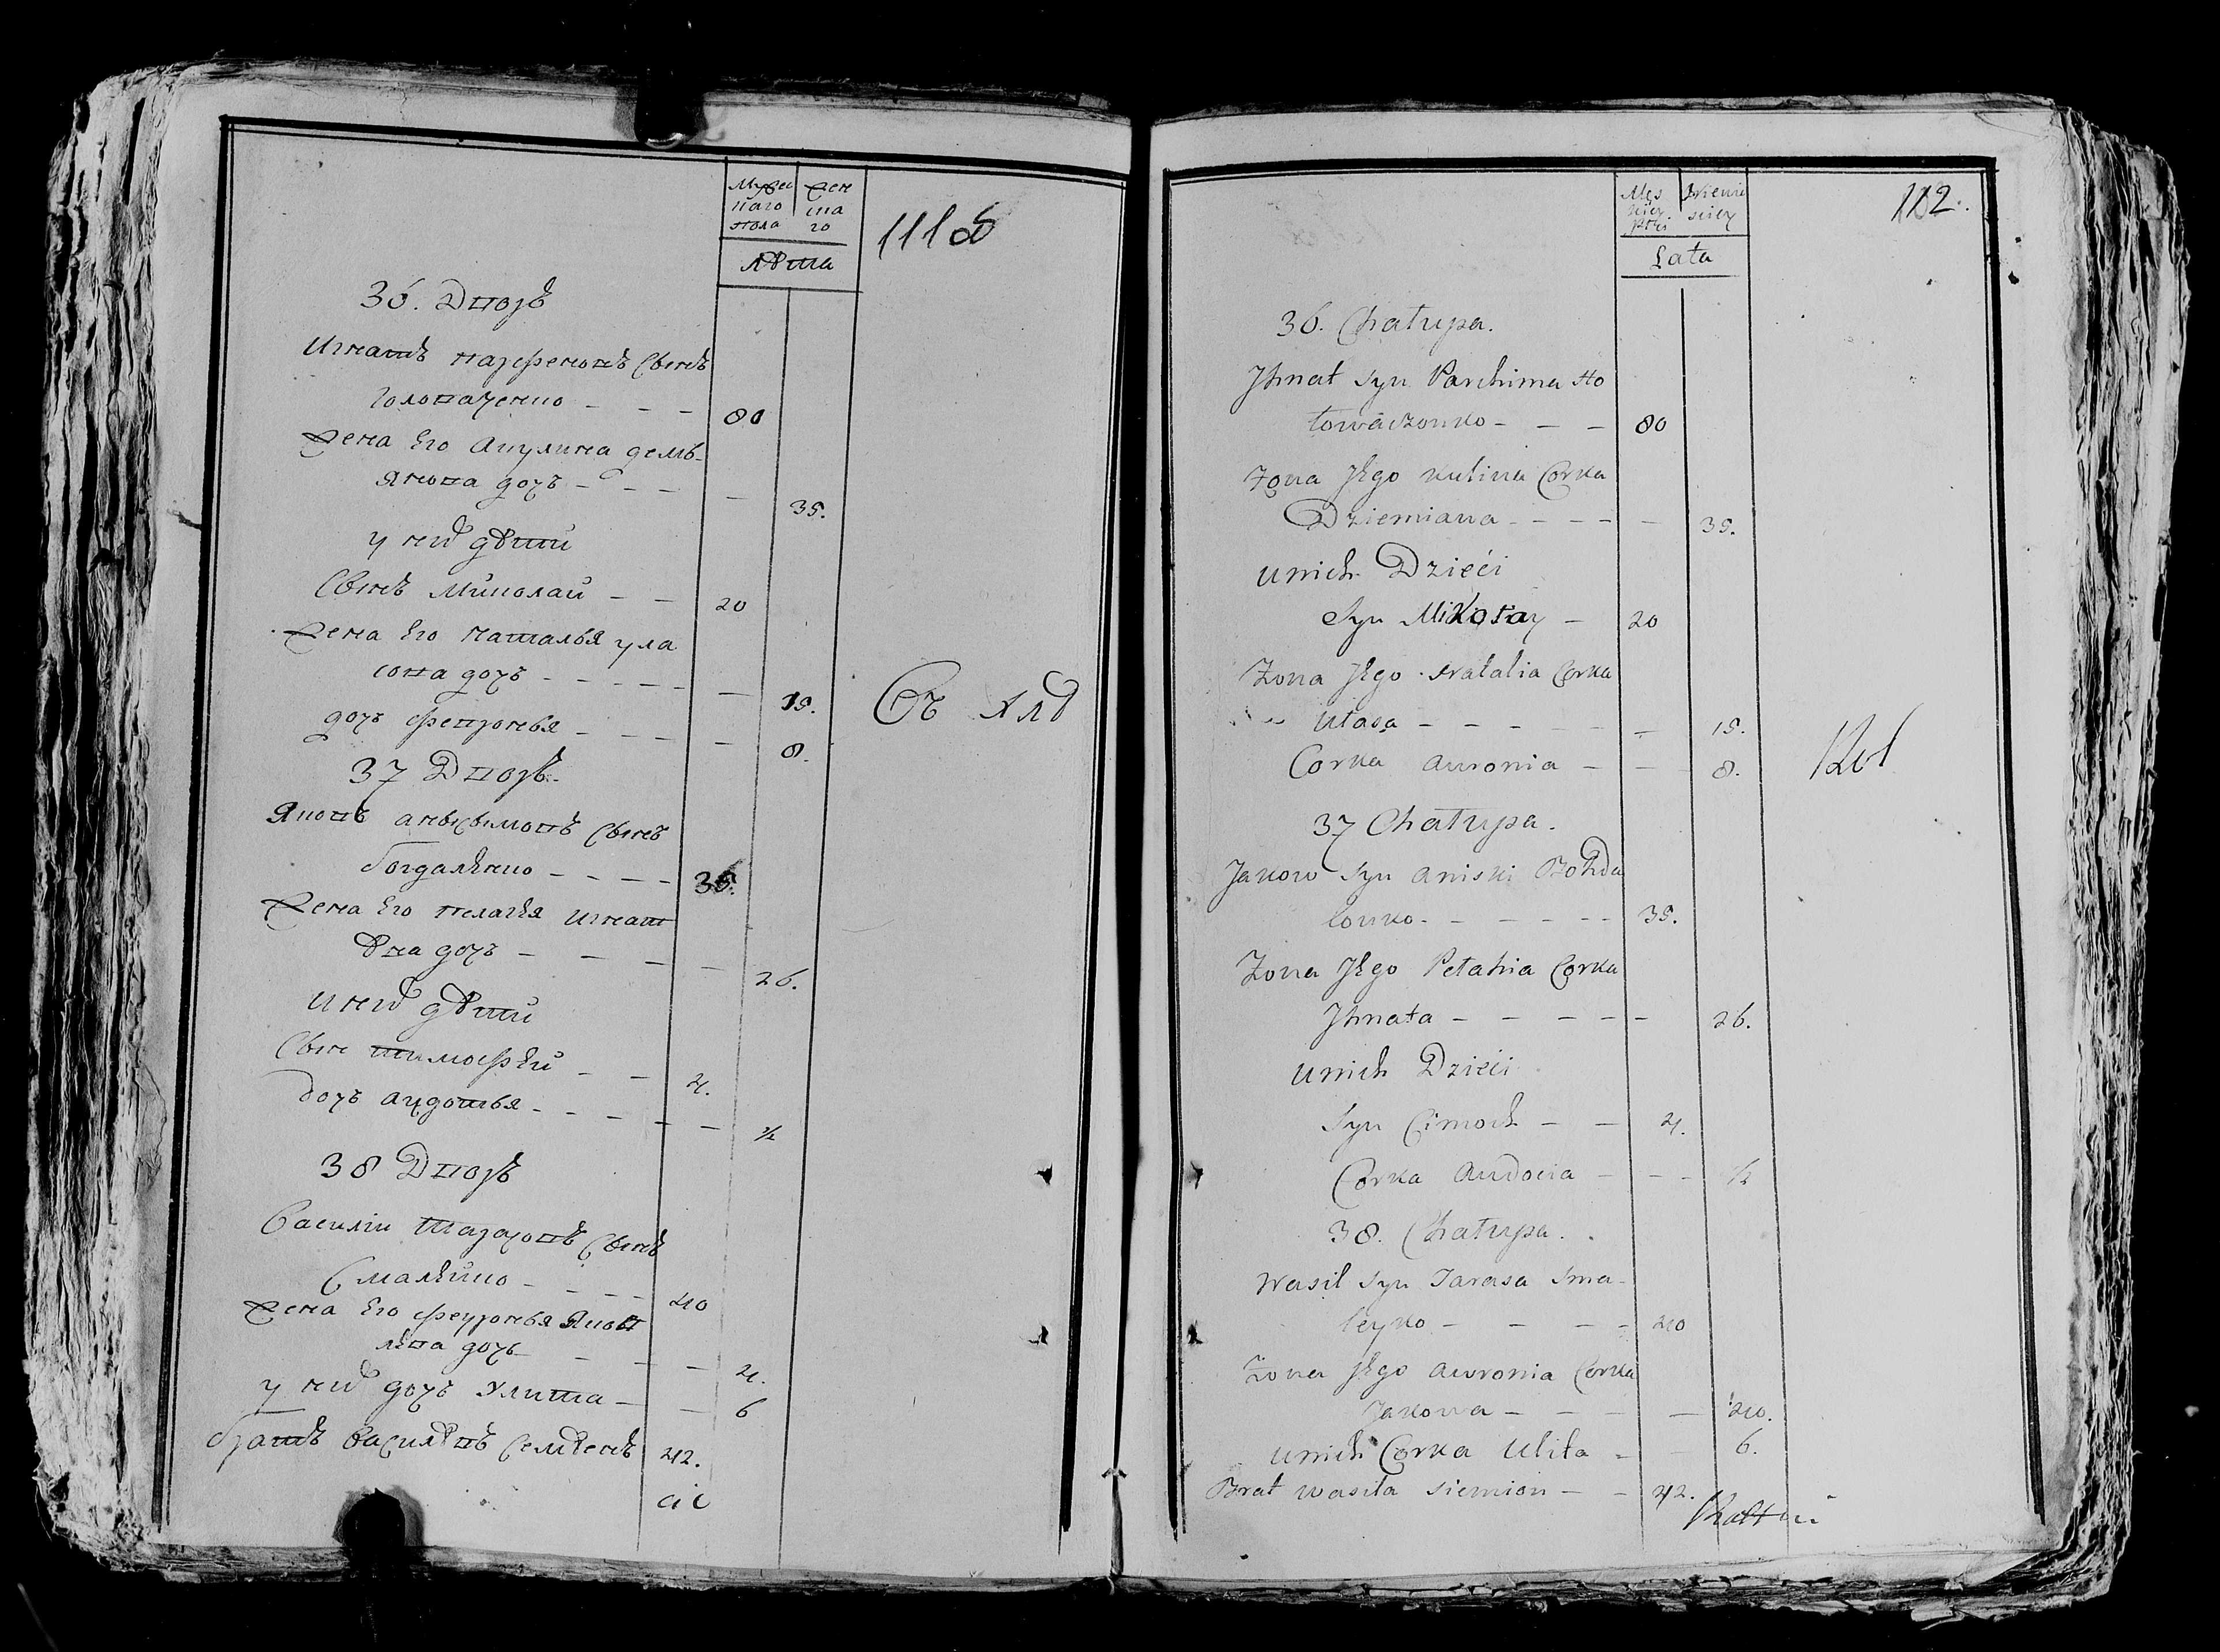 Мужес
каго
пола
жен
ска
го
лѣта
111 об
36. Дворъ
Игнатъ парфеновъ Сынъ
Головаченко - - - 80
жена Его Акулина демь-
янова дочъ - - - - 35.
у нихъ дѣти
Сынъ Миколай - - 20
жена Его наталья ула
сова дочъ - - - - - - 15.
дочъ февронья - - - - 8.
37 Дворъ.
Яковъ анысымовъ Сынъ
богдалѣнко - - - - 35.
жена Его пелагѣя Игнат
ѣва дочъ - - - - - 26.
у нихъ дѣти
Сын тимофѣй - - 4.
дочъ авдотья - - - - - - ½
38 Дворъ
Василіи Тарасовъ Сынъ
Смалѣйко - - - - 40
жена Его февронья Яков
лѣва дочъ - - - - 4.
у нихъ дочъ Улита - - 6
братъ василѣвъ Семѣенъ 42.
Męs
kiey
płci
żeńs
kiey
Lata
112.
36. Chałupa.
Jhnat syn Parchima Ho
łowaczonko - - - 80
żona Jego kulina Corka
Dziemiana - - - - - 35.
unich Dzieći
Syn Mikołay - 20
żona Jego Natalia Corka
Ułasa - - - - - - 15.
Corka auronia - - 8.
37 Chałupa.
Jakow Syn aniski Bohda
lonko - - - - - - 35.
żona Jego Pełahia Corka
Jhnata - - - - - 26.
unich Dzieći
Syn Cimoch - - 4.
Corka audocia - - - ½
38. Chałupa.
Wasil Syn Tarasa Sma-
leyko - - - - 40
żona Jego auronia Corka
Jakowa - - - - 40.
unich Corka Ulita - - 6.
Brat wasila siemion - - 42.